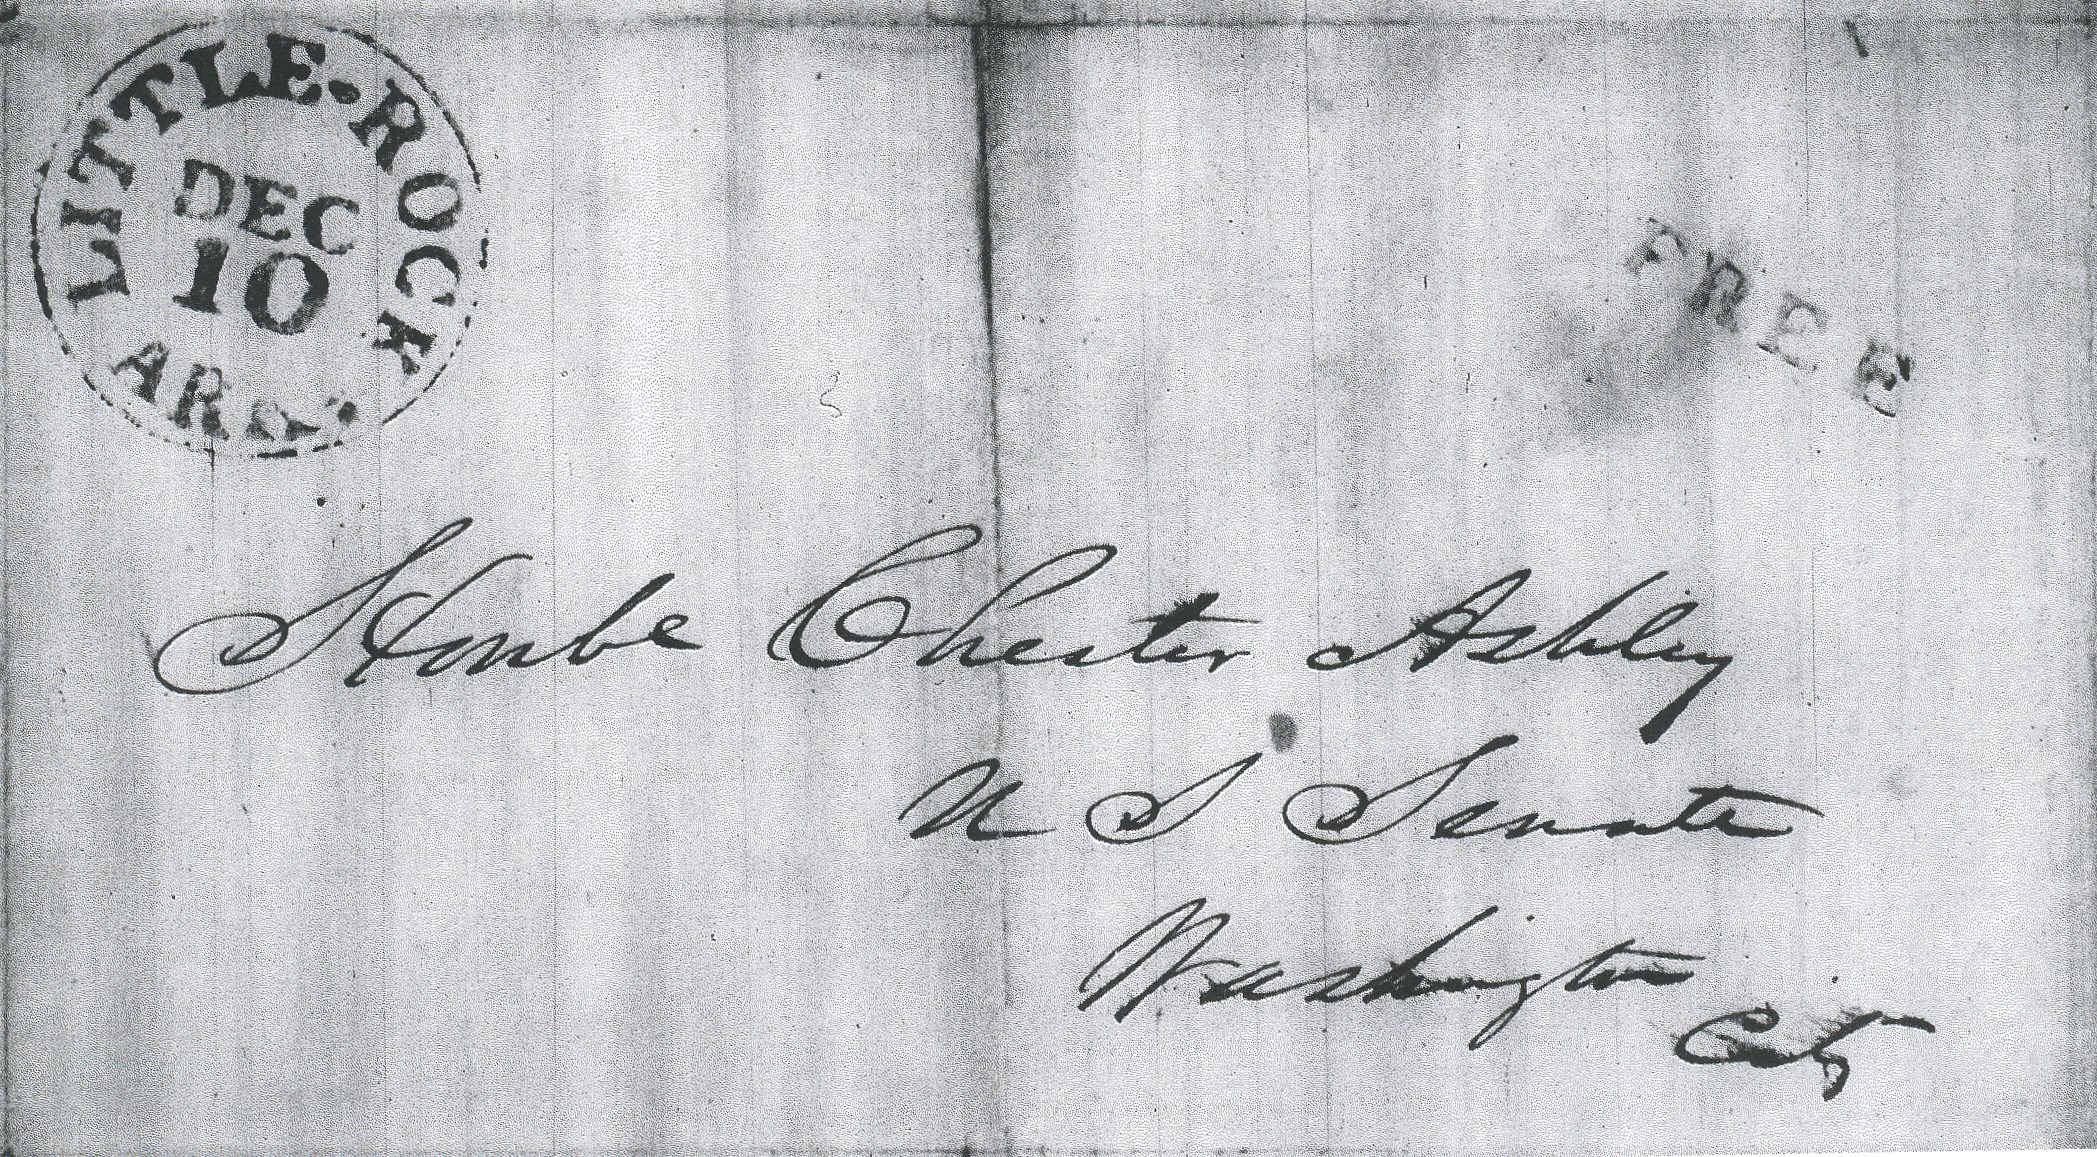 LITTLE-ROCK
DEC
10
ARKS.
FREE
Honbe Chester Ashley
U S Senate
Washington
City